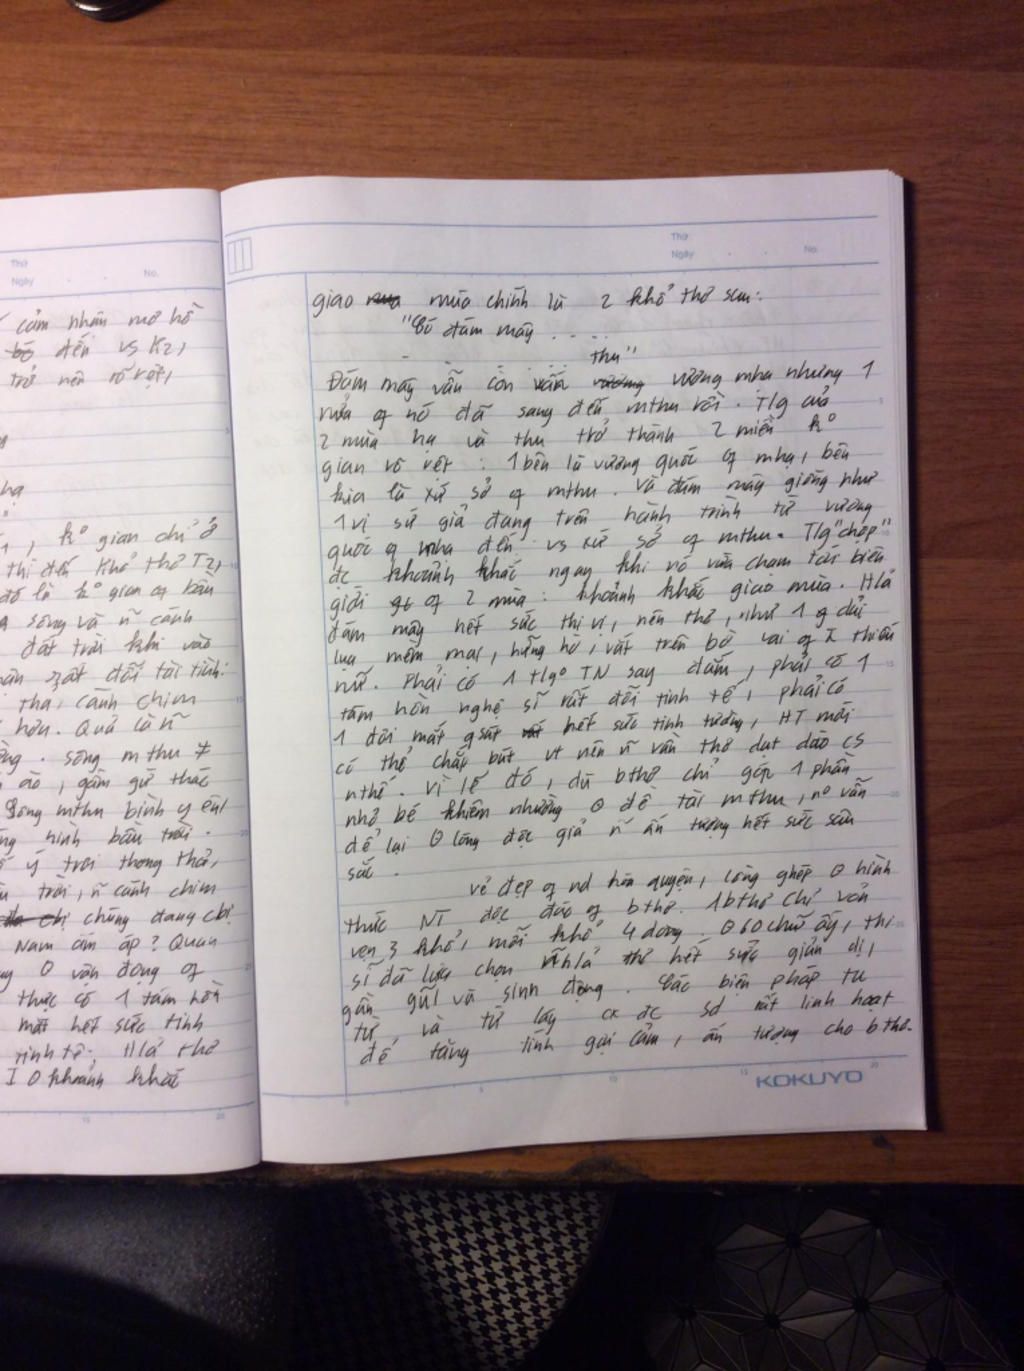 Thứ
Ngày
No.
cảm nhận mơ hồ
đến vs K2,
trở nên rõ rệt,
, k° gian chỉ ở
thì đến khổ thơ T2,
đó là k° gian of bầu
sông và ñ cánh
đất trời khi vào
rất đỗi tài tình:
tha, cánh chim
hơn. Quả là ñ
. sông mthu ≠
ào, gầm gừ thác
Sông mthu bình yên,
hình bầu trời.
ý trôi thong thả,
trời, ñ cánh chim
chúng đang cbị
Nam ấm áp? Quan
θ vận động of
thực có 1 tâm hồn
mắt hết sức tinh
tinh tế, Hlả thơ
θ khoảnh khắc
Thứ
Ngày
No.
giao mùa chính là 2 khổ thơ sau:
"Có đám mây . . .
. . . thu"
Đám mây vẫn còn vương mha nhưng 1
nửa of nó đã sang đến mthu rồi. Tlg của
2 mùa hạ và thu trở thành 2 miền k°
gian rõ rệt : 1 bên là vương quốc of mhạ, bên
kia là xứ sở of mthu. Và đám mây giống như
1 vị sứ giả đang trên hành trình từ vương
quốc of mha đến vs xứ sở of mthu. Tlg "chớp"
đc khoảnh khắc ngay khi nó vừa chạm tới biên
giới of 2 mùa : khoảnh khắc giao mùa. Hlả
đám mây hết sức thị vị, nên thơ, như 1 dải
lụa mềm mại, hững hờ, vắt trên bờ vai of thiếu
nữ. Phải có 1 TN say đắm, phải có 1
tâm hồn nghệ sĩ rất đỗi tinh tế, phải có
1 đôi mắt qsát hết sức tinh tường, HT mới
có thể chắp bút vt nên ñ vần thơ dạt dào cs
nthế. Vì lẽ đó, dù bthơ chỉ góp 1 phần
nhỏ bé khiêm nhường θ đề tài mthu, n° vẫn
để lại θ lòng độc giả ñ ấn tượng hết sức sâu
sắc.
Vẻ đẹp of nd hòa quyện, lồng ghép θ hình
thức NT độc đáo of bthơ. 1 bthơ chỉ vỏn
vẹn 3 khổ, mỗi khổ 4 dòng. θ 60 chữ ấy, thi
sĩ đã lựa chọn ñ hlả hết sức giản dị,
gần gũi và sinh động. Các biện pháp tu
từ và từ láy cx đc sd rất linh hoạt
để tăng tính gợi cảm, ấn tượng cho bthơ.
KOKUYO